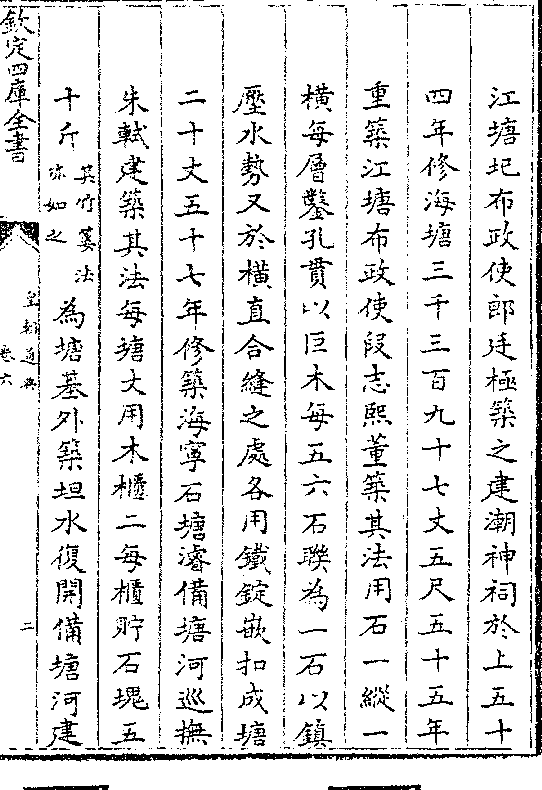 江塘圮布政使郎廷極築之建潮神祠於上五十
四年修海塘三千三百九十七丈五尺五十五年
重築江塘布政使段志熙董築其法用石一縱一
橫每層鑿孔貫以巨木每五六石聯為一石以鎮
壓水勢又於橫直合縫之處各用鐵錠嵌扣成塘
二十丈五十七年修築海寧石塘濬備塘河巡撫
朱軾建築其法每塘丈用木櫃二每櫃貯石塊五
十斤
其竹簍法
亦如之
為塘基外築坦水復開備塘河建
欽定四庫全書
皇朝通典
卷六
二